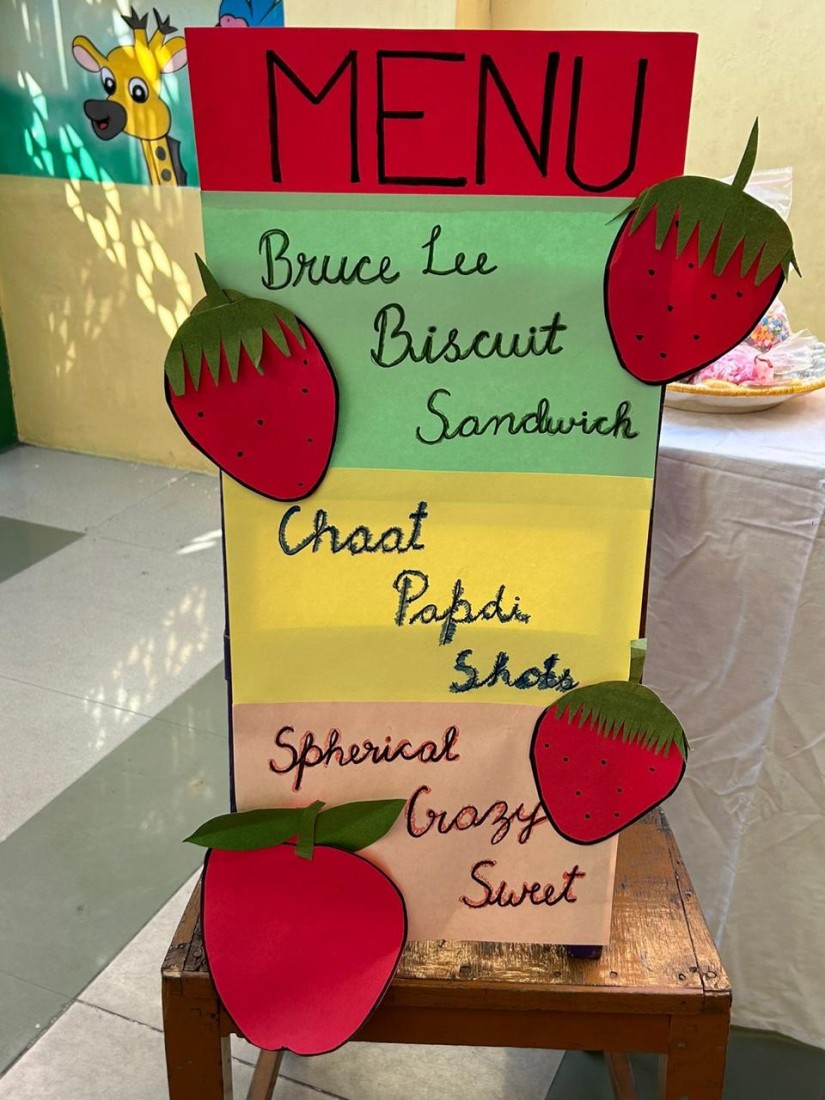 MENU
Bruce Lee
Biscuit
Sandwich
Chaat
Papdi
Shots
Spherical
Crazy
Sweet